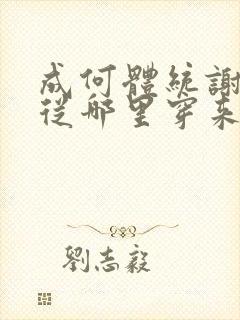 成何體統謝
從那里穿来
劉志毅